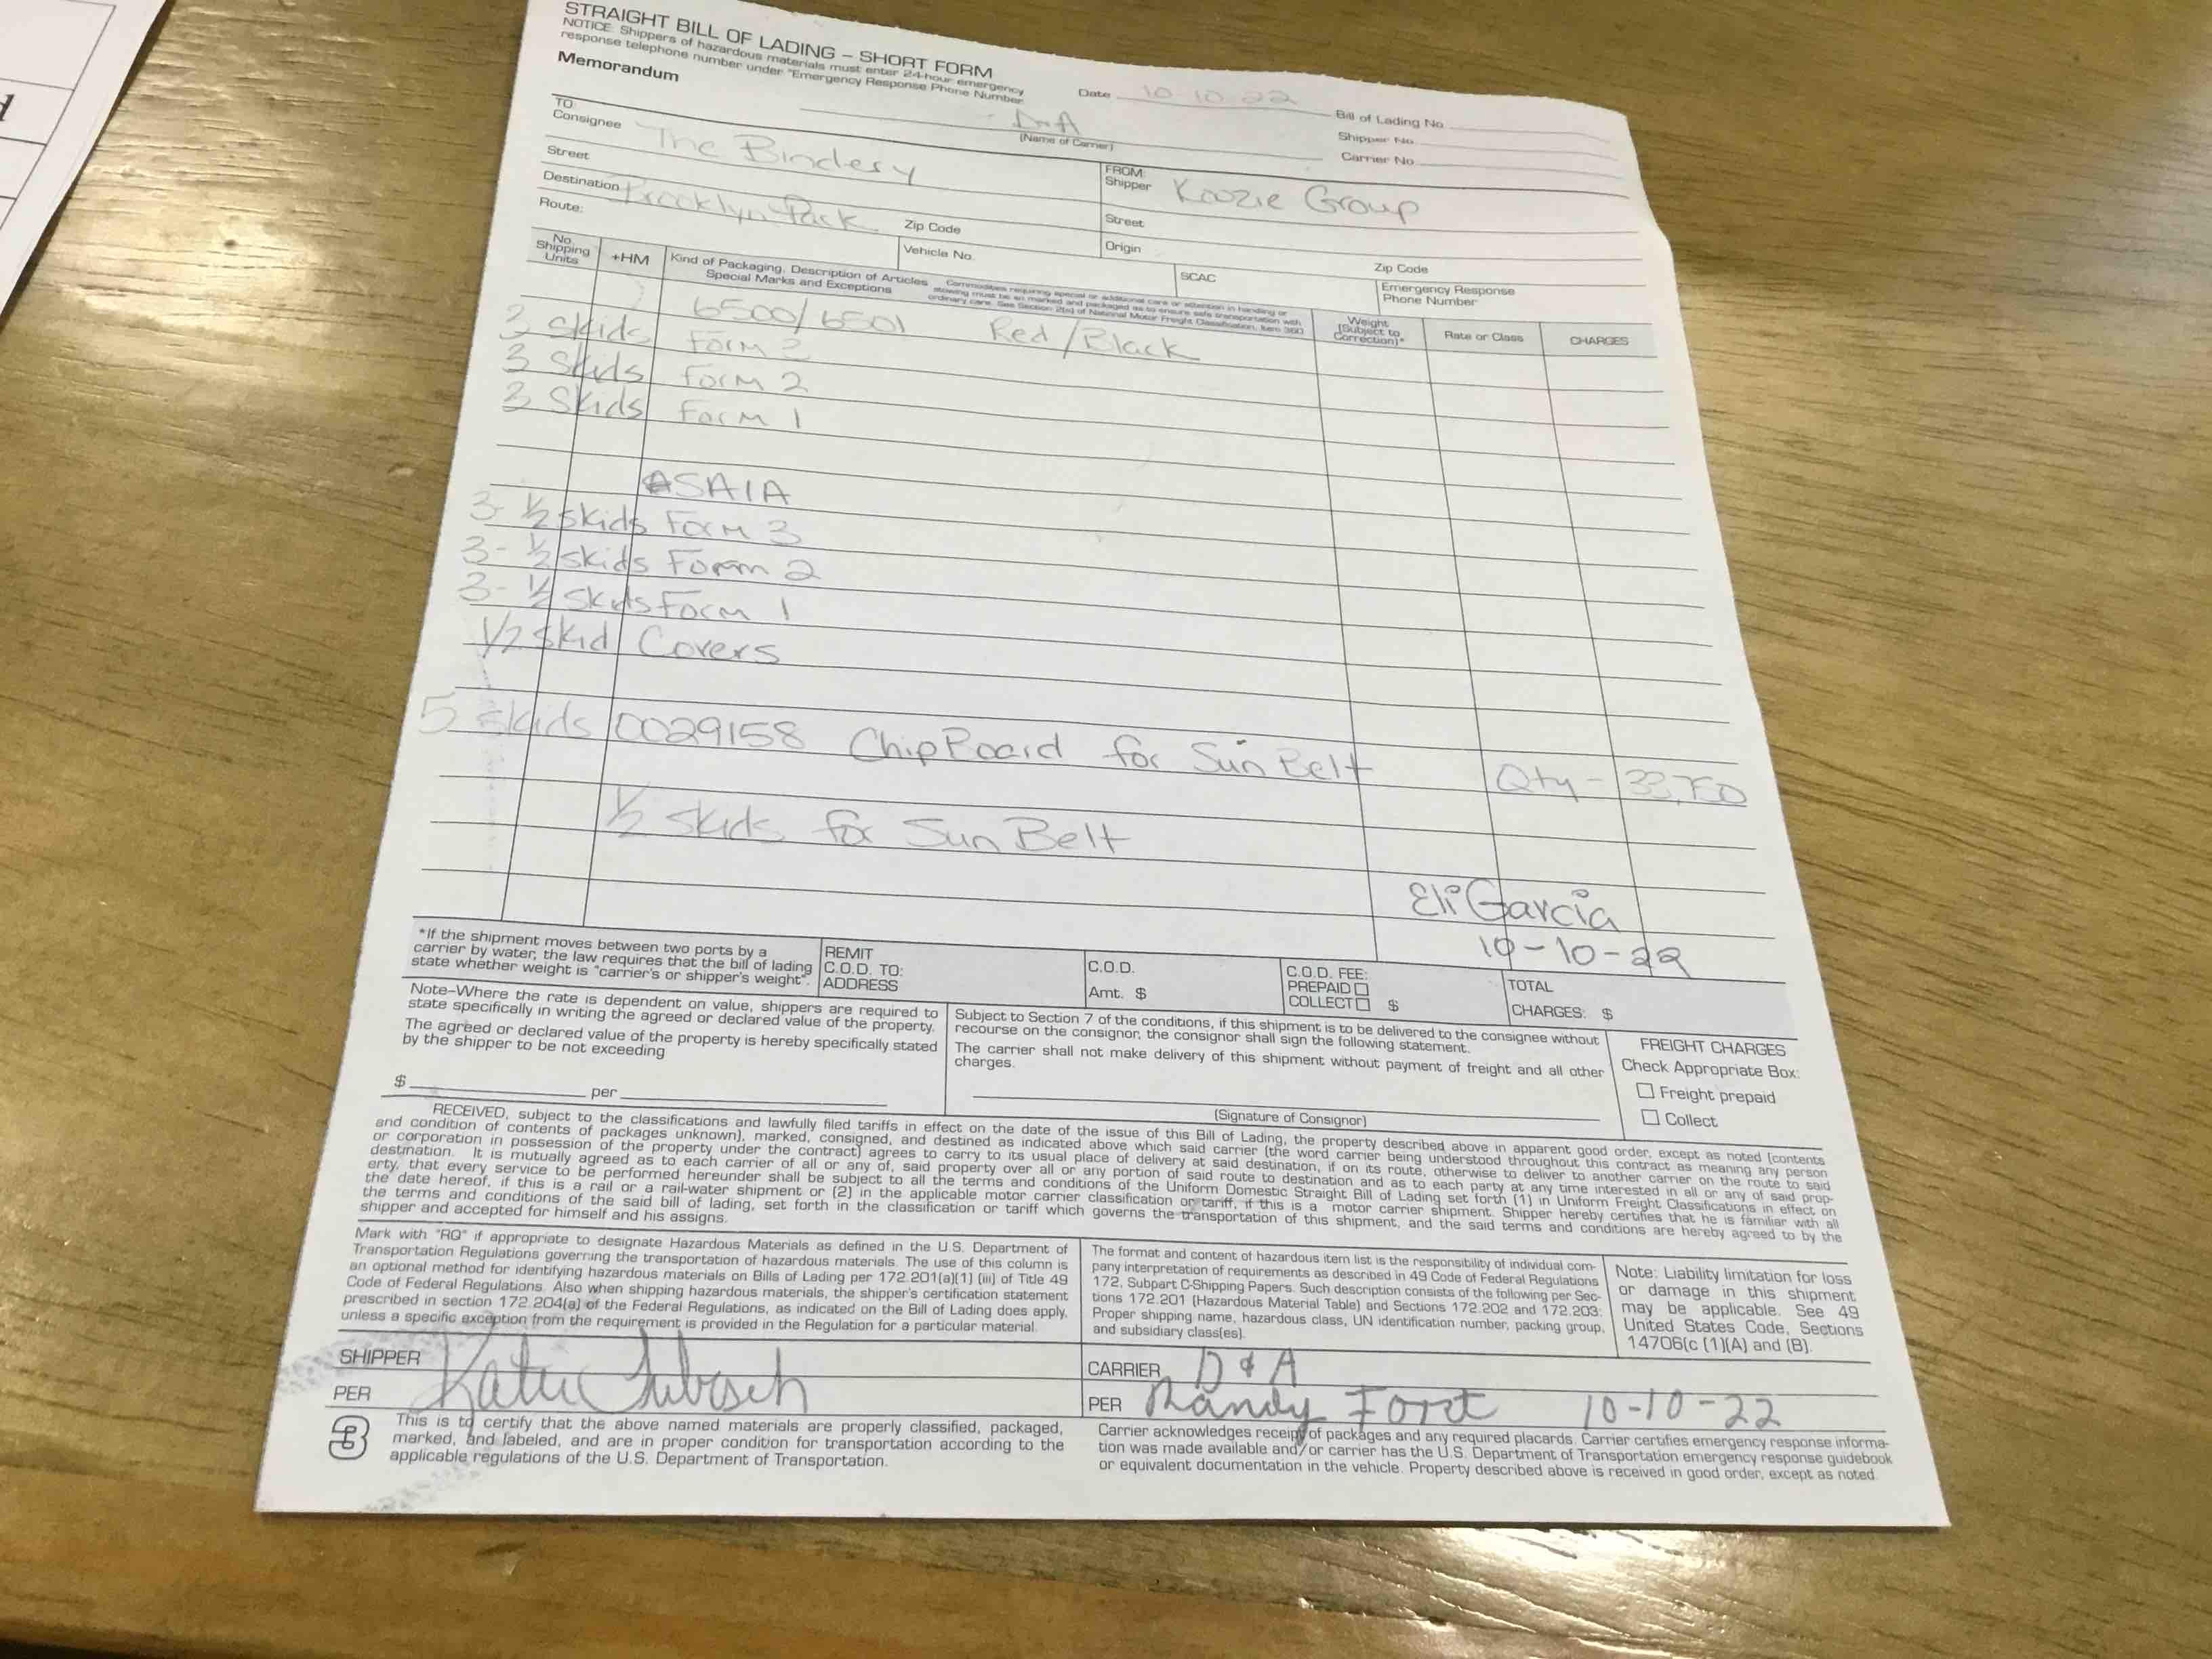 d
STRAIGHT BILL OF LADING – SHORT FORM
NOTICE: Shippers of hazardous materials must enter 24-hour emergency
response telephone number under "Emergency Response Phone Number.
Memorandum
Date 10-10-22
Bill of Lading No.
Shipper No.
Carrier No.
D&A
(Name of Carrier)
TO:
Consignee The Bindery
Street
Destination Brooklyn Park
Zip Code
Route:
Vehicle No.
FROM:
Shipper Koozie Group
Street
Origin
Zip Code
SCAC
Emergency Response
Phone Number
No.
Shipping
Units
+HM
Kind of Packaging, Description of Articles
Special Marks and Exceptions
Commodities requiring special or additional care or attention in handling or
stowing must be so marked and packaged as to ensure safe transportation with
ordinary care. See Section 2(e) of National Motor Freight Classification, Item 360
Weight
(Subject to
Correction)*
Rate or Class
CHARGES
6500/6501 Red/Black
3 skids Form 3
3 Skids Form 2
3 Skids Form 1
SAIA
3- 1/2 skids Form 3
3- 1/2 skids Form 2
3- 1/2 skids Form 1
1/2 skid Covers
5 skids 0029158 ChipBoard for Sun Belt Qty - 33,750
1/2 skids for Sun Belt
Eli Garcia
10-10-22
*If the shipment moves between two ports by a
carrier by water, the law requires that the bill of lading
state whether weight is "carrier's or shipper's weight".
REMIT
C.O.D. TO:
ADDRESS
C.O.D.
Amt. $
C.O.D. FEE:
PREPAID
COLLECT $
TOTAL
CHARGES: $
Note–Where the rate is dependent on value, shippers are required to
state specifically in writing the agreed or declared value of the property.
The agreed or declared value of the property is hereby specifically stated
by the shipper to be not exceeding
$ per
Subject to Section 7 of the conditions, if this shipment is to be delivered to the consignee without
recourse on the consignor, the consignor shall sign the following statement.
The carrier shall not make delivery of this shipment without payment of freight and all other
charges.
(Signature of Consignor)
FREIGHT CHARGES
Check Appropriate Box:
Freight prepaid
Collect
RECEIVED, subject to the classifications and lawfully filed tariffs in effect on the date of the issue of this Bill of Lading, the property described above in apparent good order, except as noted (contents
and condition of contents of packages unknown), marked, consigned, and destined as indicated above which said carrier (the word carrier being understood throughout this contract as meaning any person
or corporation in possession of the property under the contract) agrees to carry to its usual place of delivery at said destination, if on its route, otherwise to deliver to another carrier on the route to said
destination. It is mutually agreed as to each carrier of all or any of, said property over all or any portion of said route to destination and as to each party at any time interested in all or any of said prop-
erty, that every service to be performed hereunder shall be subject to all the terms and conditions of the Uniform Domestic Straight Bill of Lading set forth (1) in Uniform Freight Classifications in effect on
the date hereof, if this is a rail or a rail-water shipment or (2) in the applicable motor carrier classification or tariff, if this is a motor carrier shipment. Shipper hereby certifies that he is familiar with all
the terms and conditions of the said bill of lading, set forth in the classification or tariff which governs the transportation of this shipment, and the said terms and conditions are hereby agreed to by the
shipper and accepted for himself and his assigns.
Mark with "RQ" if appropriate to designate Hazardous Materials as defined in the U.S. Department of
Transportation Regulations governing the transportation of hazardous materials. The use of this column is
an optional method for identifying hazardous materials on Bills of Lading per 172.201(a)(1) (iii) of Title 49
Code of Federal Regulations. Also when shipping hazardous materials, the shipper's certification statement
prescribed in section 172.204(a) of the Federal Regulations, as indicated on the Bill of Lading does apply,
unless a specific exception from the requirement is provided in the Regulation for a particular material.
The format and content of hazardous item list is the responsibility of individual com-
pany interpretation of requirements as described in 49 Code of Federal Regulations
172, Subpart C-Shipping Papers. Such description consists of the following per Sec-
tions 172.201 (Hazardous Material Table) and Sections 172.202 and 172.203:
Proper shipping name, hazardous class, UN identification number, packing group,
and subsidiary class(es).
Note: Liability limitation for loss
or damage in this shipment
may be applicable. See 49
United States Code, Sections
14706(c (1)(A) and (B).
SHIPPER
PER Katie
CARRIER D & A
PER Randy Fort 10-10-22
3
This is to certify that the above named materials are properly classified, packaged,
marked, and labeled, and are in proper condition for transportation according to the
applicable regulations of the U.S. Department of Transportation.
Carrier acknowledges receipt of packages and any required placards. Carrier certifies emergency response informa-
tion was made available and/or carrier has the U.S. Department of Transportation emergency response guidebook
or equivalent documentation in the vehicle. Property described above is received in good order, except as noted.